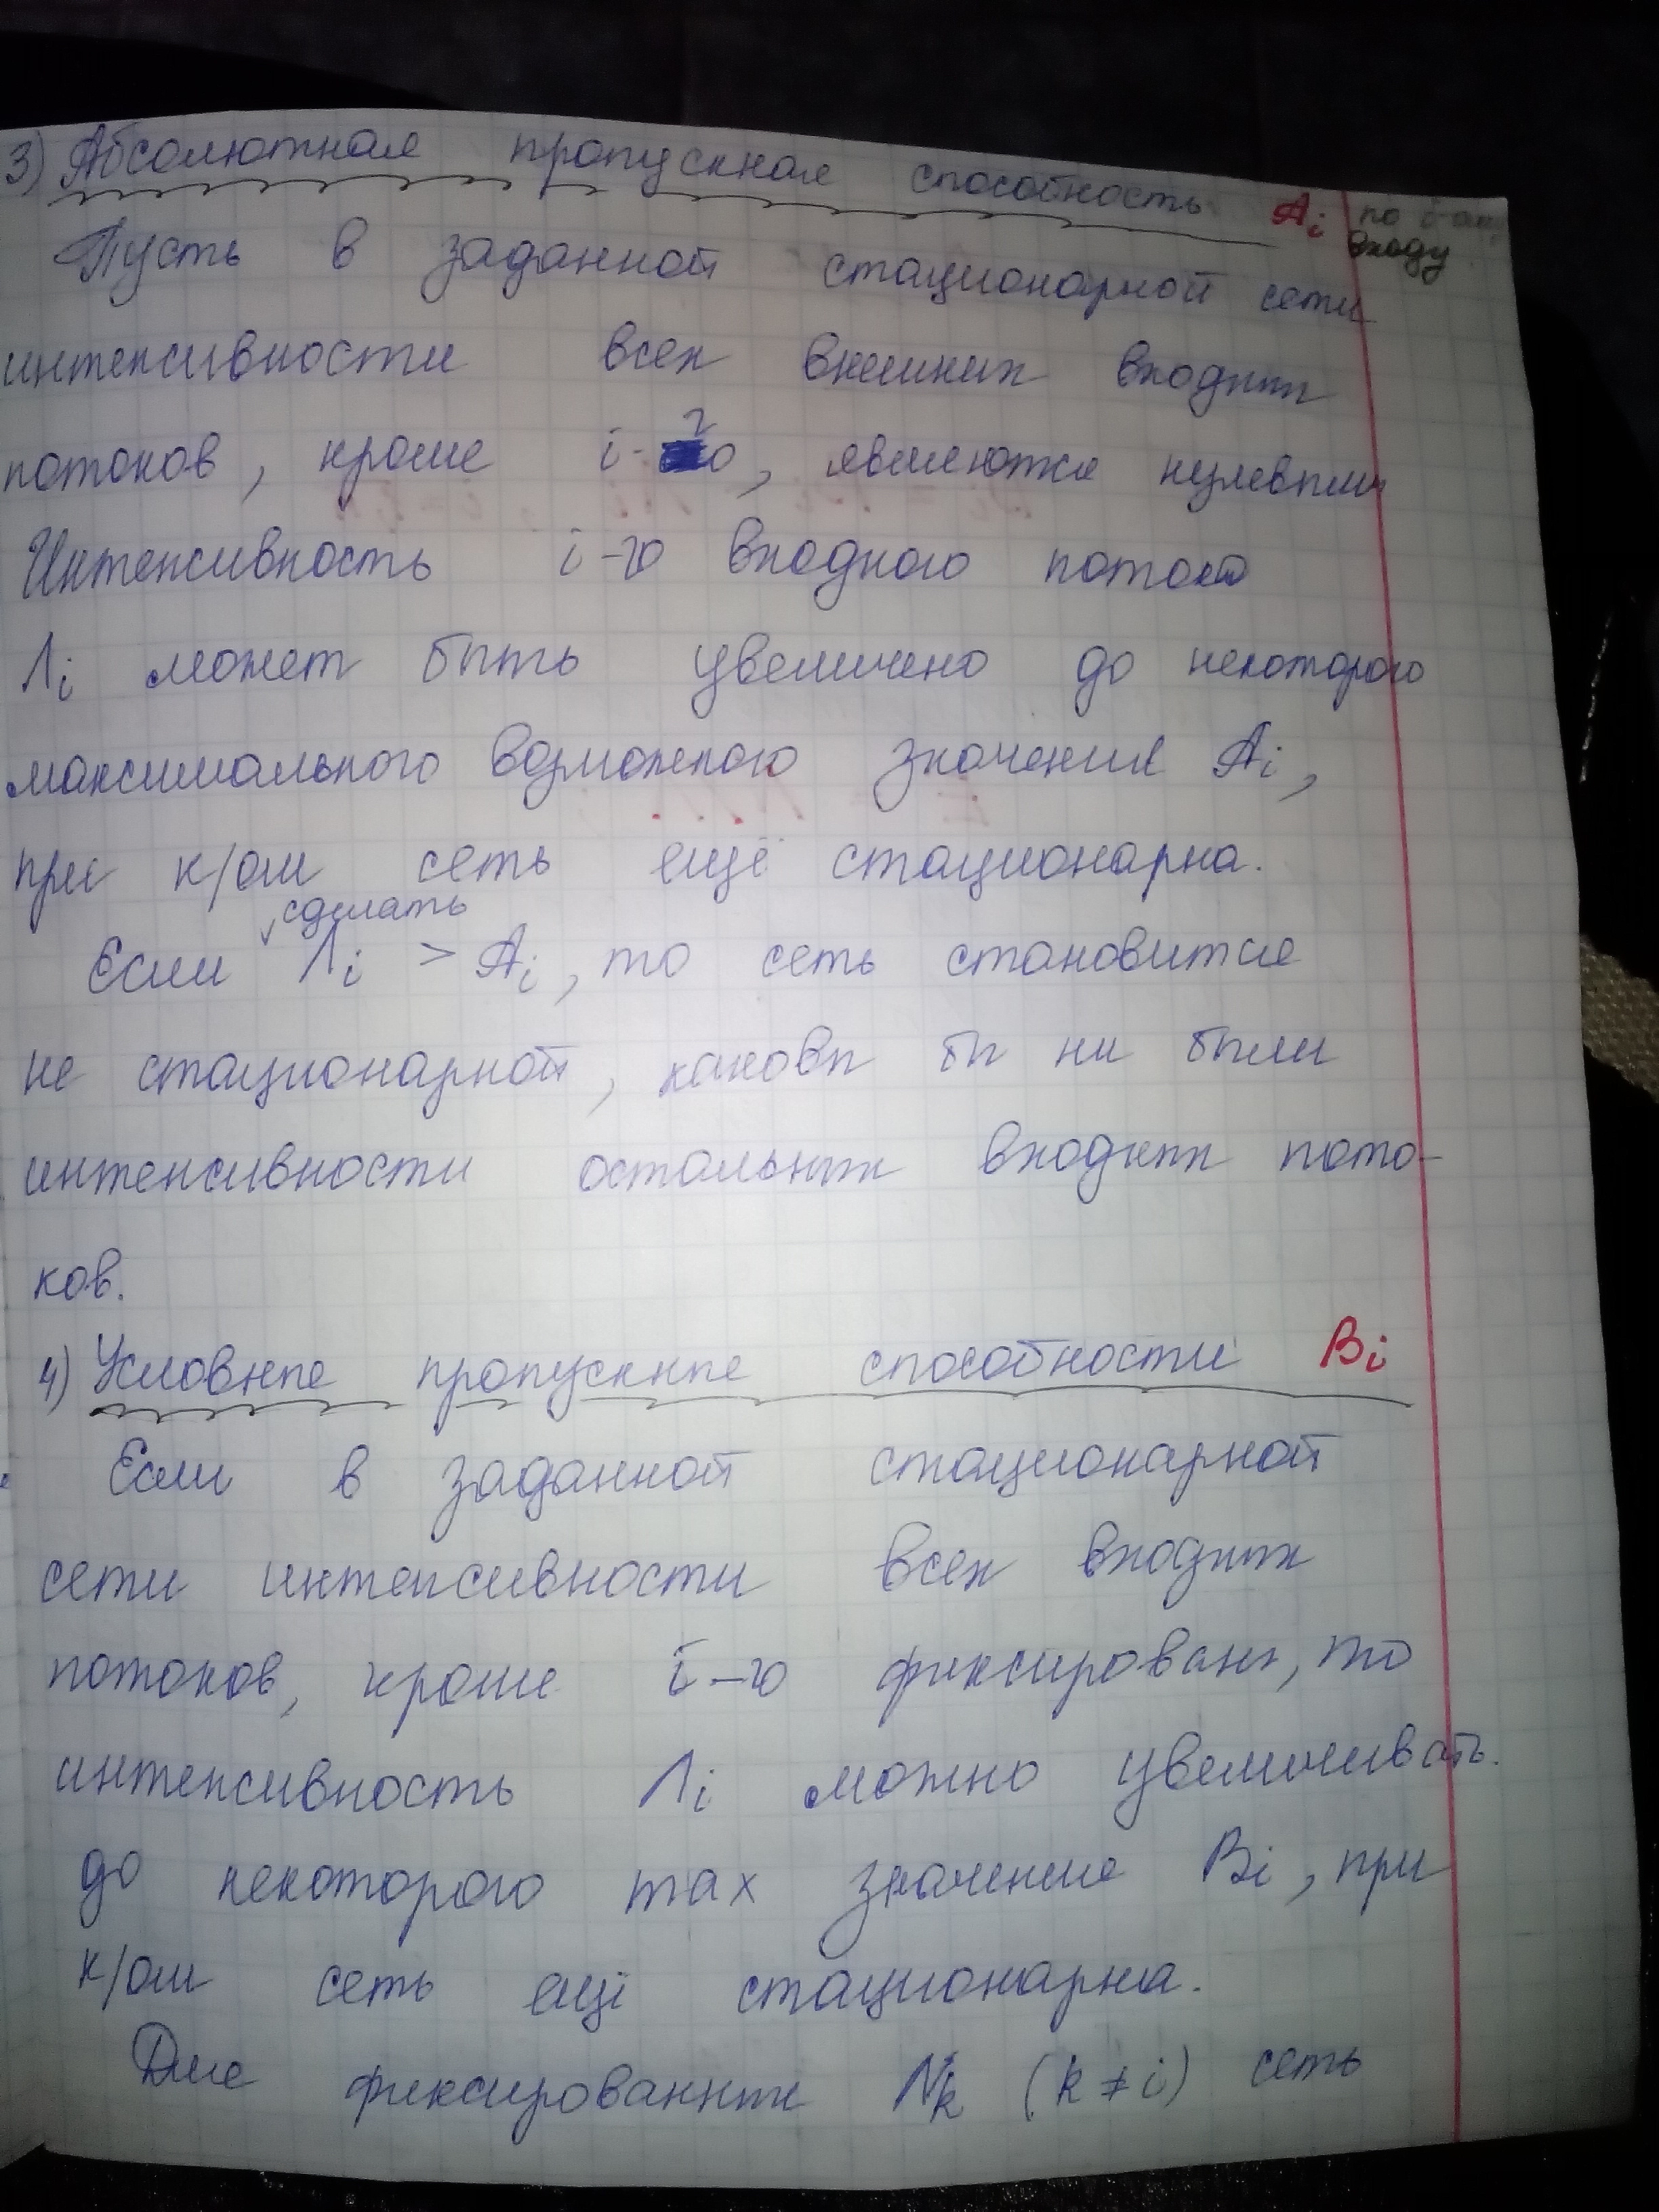 3) Абсолютная пропускная способность Ai по i-ому входу
Пусть в заданной стационарной сети
интенсивности всех внешних входных
потоков, кроме i-го, являются нулевыми
Интенсивность i-го входного потока
Λi может быть увеличено до некоторого
максимального возможного значения Ai,
при к/ом сеть ещё стационарна.
сделать
Если Λi > Ai, то сеть становится
не стационарной, каковы бы ни были
интенсивности остальных входных пото-
ков.
4) Условные пропускные способности Bi
Если в заданной стационарной
сети интенсивности всех входных
потоков, кроме i-го фиксированы, то
интенсивность Λi можно увеличивать
до некоторого max значения Bi, при
к/ом сеть ещё стационарна.
Для фиксированных Λk (k ≠ i) сеть